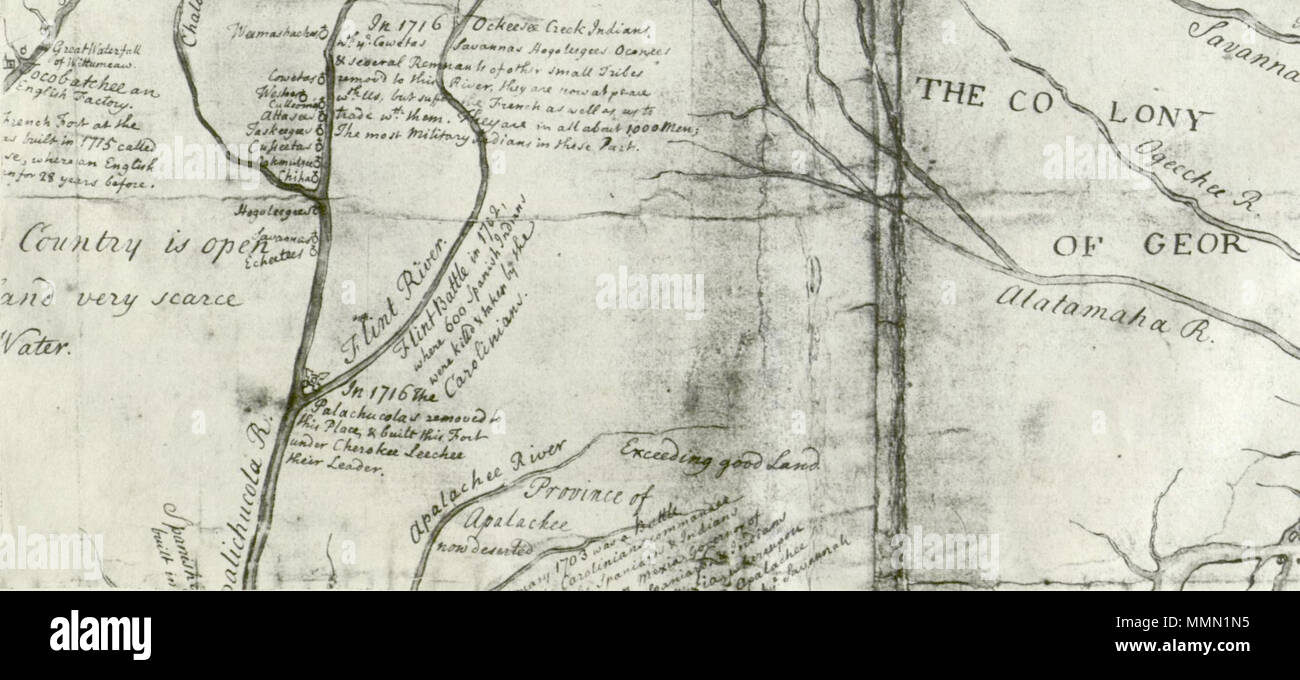 Chala
Great Waterfall
of Wittumcaw.
ocobatchee an
English Factory.
French Fort at the
es built in 1715 called
se, where an English
en for 28 years before.
Weemasbachus
Cowetas
Westert
Cullooma
Attasee
Taskeegus
Cusseetas
Oakmulgee
Chiha
Hogoleegees
Savannas
Echeetees
In 1716 Ockeesee Creek Indians,
wth ye Cowetas Savannas Hogoleegees Oconees
& several Remnants of other small Tribes
remov'd to this River, they are now at peace
wth Us, but suffer the French as well as us to
trade wth them. They are in all about 1000 Men;
The most Military Indians in these Part.
Country is open
and very scarce
Water.
Flint River.
Flint Battle in 1702,
where 600 Spanish Indians
were kill'd & taken by the
Carolinians.
In 1716 the
Palachucolas removed to
this Place, & built this Fort
under Cherokee Leechee
their Leader.
palichucola R.
Spanish
built in
Apalachee River
Exceeding good Land
Province of
Apalachee
now deserted
uary 1703 was a Battle
Carolinians commanded
Spaniards & Indians
Mexia Governor of
Spaniards & Indians
whereupon
Apalachee
Savannah
Savanna
THE COLONY
OF GEOR
Ogechee R.
Alatamaha R.
alamy
alamy
Image ID: MMN1N5
www.alamy.com